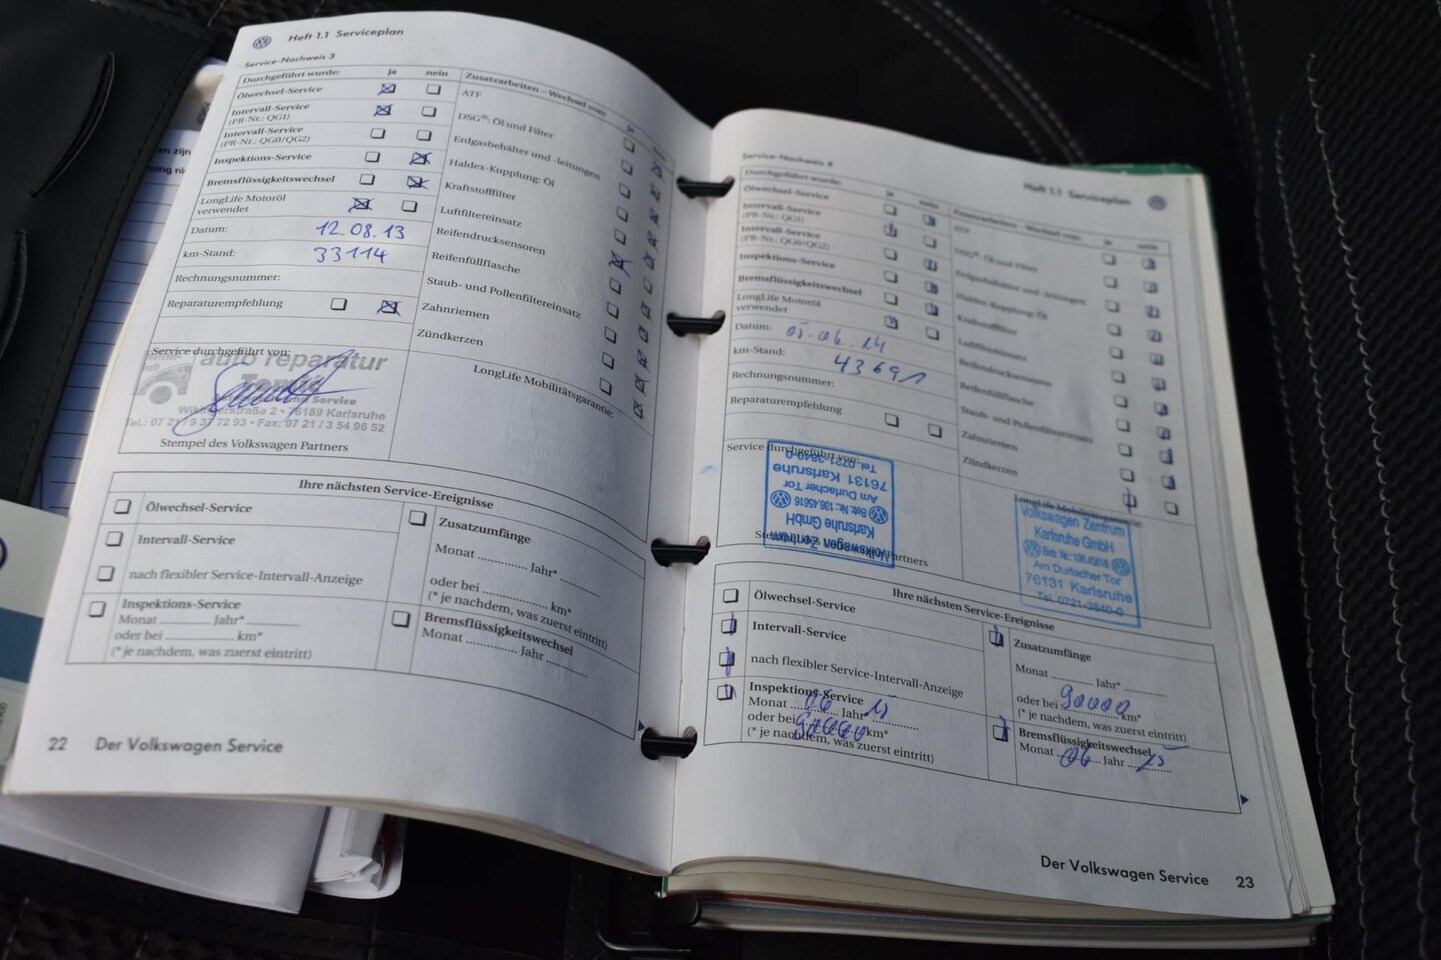 Heft 1.1 Serviceplan
Service-Nachweis 3
Durchgeführt wurde: ja nein
Ölwechsel-Service
Intervall-Service
(PR-Nr.: QG1)
Intervall-Service
(PR-Nr.: QG0/QG2)
Inspektions-Service
Bremsflüssigkeitswechsel
LongLife Motoröl
verwendet
Datum: 12.08.13
km-Stand: 33114
Rechnungsnummer:
Reparaturempfehlung
Zusatzarbeiten – Wechsel von: ja
ATF
DSG®: Öl und Filter
Erdgasbehälter und -leitungen
Haldex-Kupplung: Öl
Kraftstofffilter
Luftfiltereinsatz
Reifendrucksensoren
Reifenfüllflasche
Staub- und Pollenfiltereinsatz
Zahnriemen
Zündkerzen
LongLife Mobilitätsgarantie:
Service durchgeführt von:
auto reparatur
und Service
Wikingerstraße 2 • 76189 Karlsruhe
Tel.: 07 21 / 9 37 72 93 • Fax: 07 21 / 3 54 96 52
Stempel des Volkswagen Partners
Ihre nächsten Service-Ereignisse
Ölwechsel-Service
Intervall-Service
nach flexibler Service-Intervall-Anzeige
Inspektions-Service
Monat ............... Jahr* ...............
oder bei ............... km*
(* je nachdem, was zuerst eintritt)
Zusatzumfänge
Monat ............... Jahr* ...............
oder bei ............... km*
(* je nachdem, was zuerst eintritt)
Bremsflüssigkeitswechsel
Monat ............... Jahr ...............
22 Der Volkswagen Service
Heft 1.1 Serviceplan
Service-Nachweis 4
Durchgeführt wurde: ja nein
Ölwechsel-Service
Intervall-Service
(PR-Nr.: QG1)
Intervall-Service
(PR-Nr.: QG0/QG2)
Inspektions-Service
Bremsflüssigkeitswechsel
LongLife Motoröl
verwendet
Datum: 05.06.14
km-Stand: 43691
Rechnungsnummer:
Reparaturempfehlung
Zusatzarbeiten – Wechsel von: ja nein
ATF
DSG®: Öl und Filter
Erdgasbehälter und -leitungen
Haldex-Kupplung: Öl
Kraftstofffilter
Luftfiltereinsatz
Reifendrucksensoren
Reifenfüllflasche
Staub- und Pollenfiltereinsatz
Zahnriemen
Zündkerzen
LongLife Mobilitätsgarantie:
Service durchgeführt von:
Volkswagen Zentrum
Karlsruhe GmbH
Betr. Nr.: 136.45616
Am Durlacher Tor
76131 Karlsruhe
Tel. 0721-3840-0
Volkswagen Zentrum
Karlsruhe GmbH
Betr. Nr.: 136.45616
Am Durlacher Tor
76131 Karlsruhe
Tel. 0721-3840-0
Ihre nächsten Service-Ereignisse
Ölwechsel-Service
Intervall-Service
nach flexibler Service-Intervall-Anzeige
Inspektions-Service
Monat 06 Jahr* 15
oder bei km*
(* je nachdem, was zuerst eintritt)
Zusatzumfänge
Monat ............... Jahr* ...............
oder bei 90000 km*
(* je nachdem, was zuerst eintritt)
Bremsflüssigkeitswechsel
Monat 06 Jahr 15
Der Volkswagen Service 23